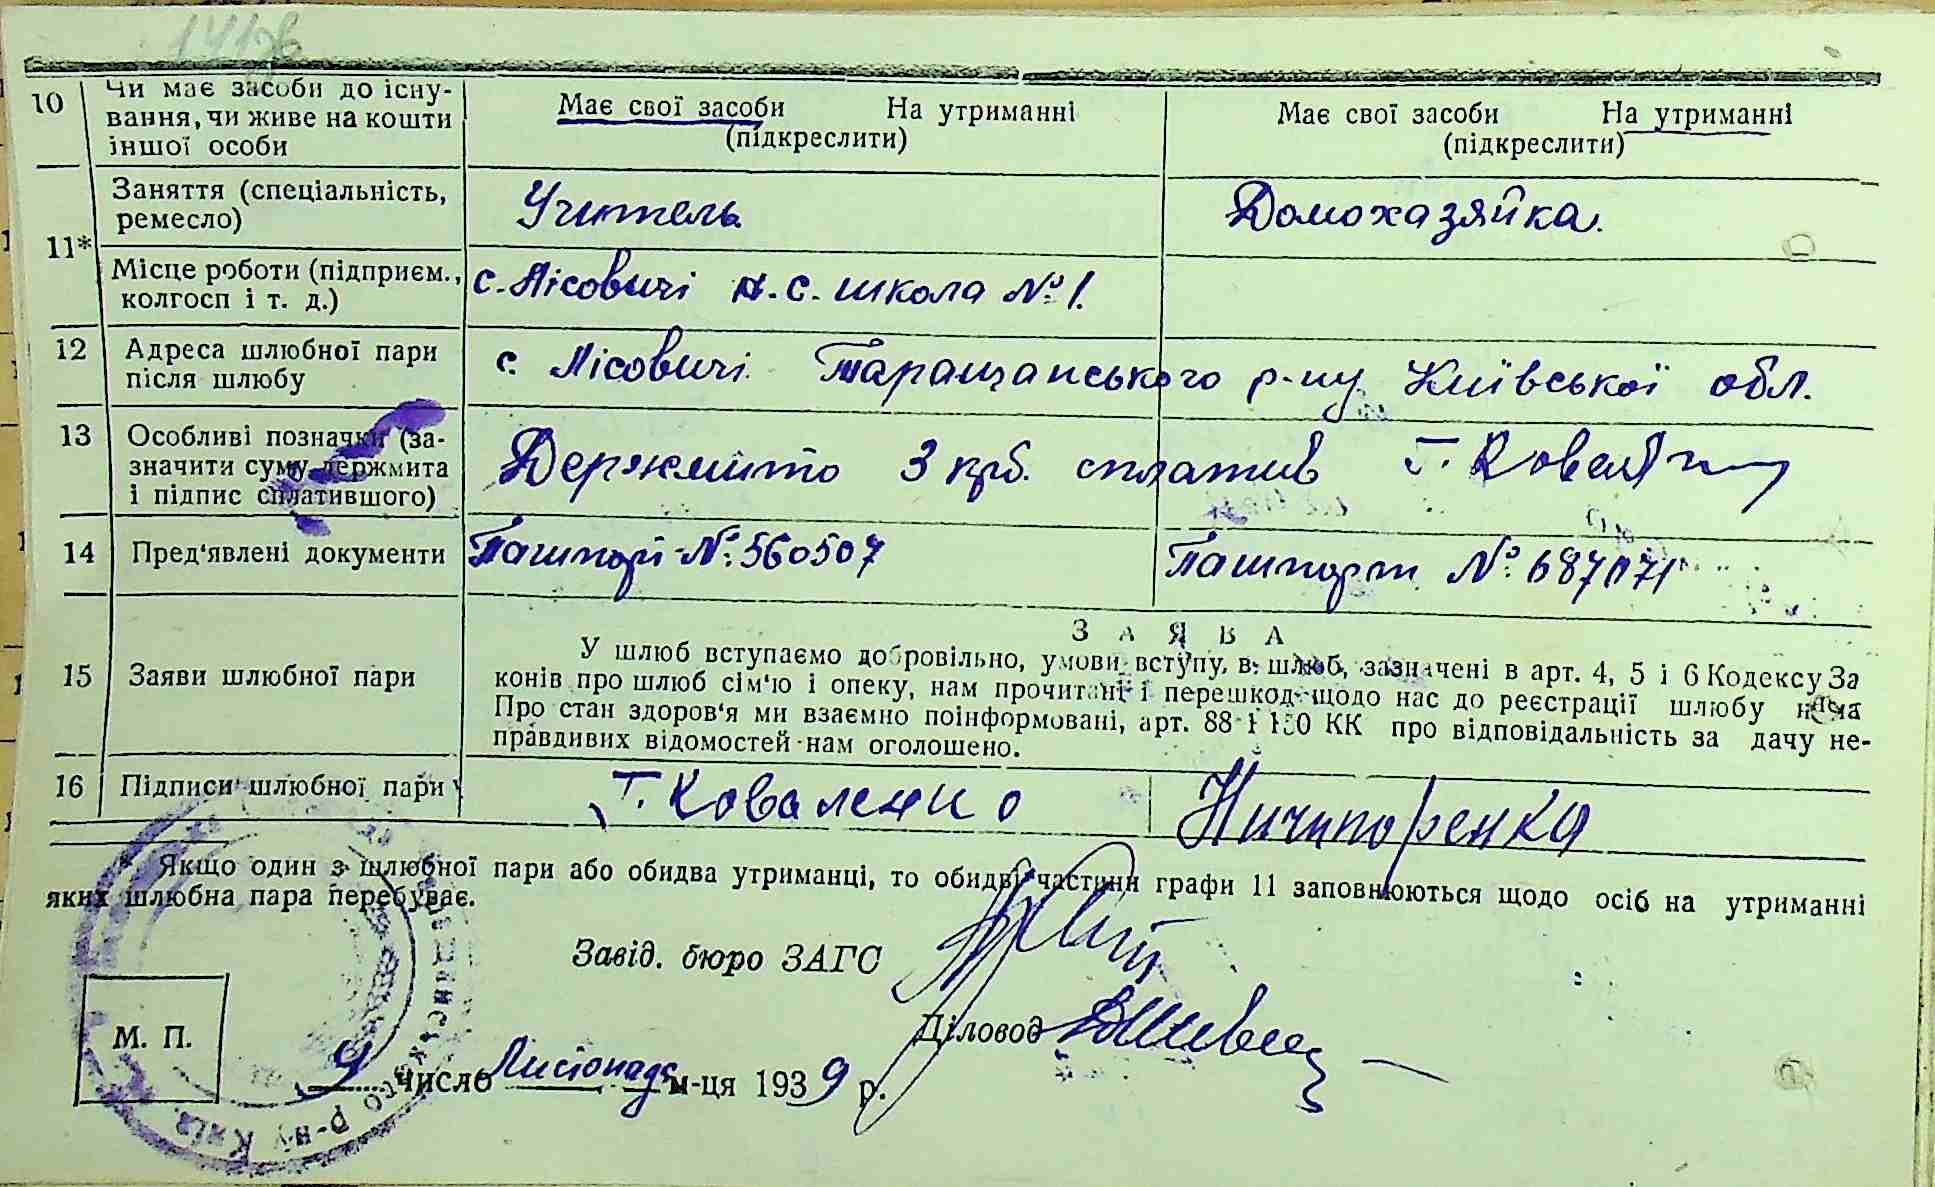 10
Чи має засоби до існу-
вання, чи живе на кошти
іншої особи
Має свої засоби На утриманні
(підкреслити)
Має свої засоби На утриманні
(підкреслити)
11*
Заняття (спеціальність,
ремесло)
Учитель
Домохазяйка.
Місце роботи (підприєм.,
колгосп і т. д.)
с. Лісовичі н.с. школа №1.
12
Адреса шлюбної пари
після шлюбу
с. Лісовичі Таращанського р-ну Київської обл.
13
Особливі позначки (за-
значити суму держмита
і підпис сплатившого)
Держмито 3 крб. сплатив Г. Коваленко
14
Пред'явлені документи
Пашпорт №560507
Пашпорт №
15
Заяви шлюбної пари
ЗАЯВА
У шлюб вступаємо добровільно, умови вступу в шлюб, зазначені в арт. 4, 5 і 6 Кодексу За
конів про шлюб сім'ю і опеку, нам прочитані і перешкод щодо нас до реєстрації шлюбу нема
Про стан здоров'я ми взаємно поінформовані, арт. 88 і 130 КК про відповідальність за дачу не-
правдивих відомостей нам оголошено.
16
Підписи шлюбної пари
Г. Коваленко
Ничипоренка
* Якщо один з шлюбної пари або обидва утриманці, то обидві частини графи 11 заповнюються щодо осіб на утриманні
яких шлюбна пара перебуває.
Завід. бюро ЗАГС
Діловод
М. П.
9 число Листопада м-ця 1939 р.
р-ну Київ.